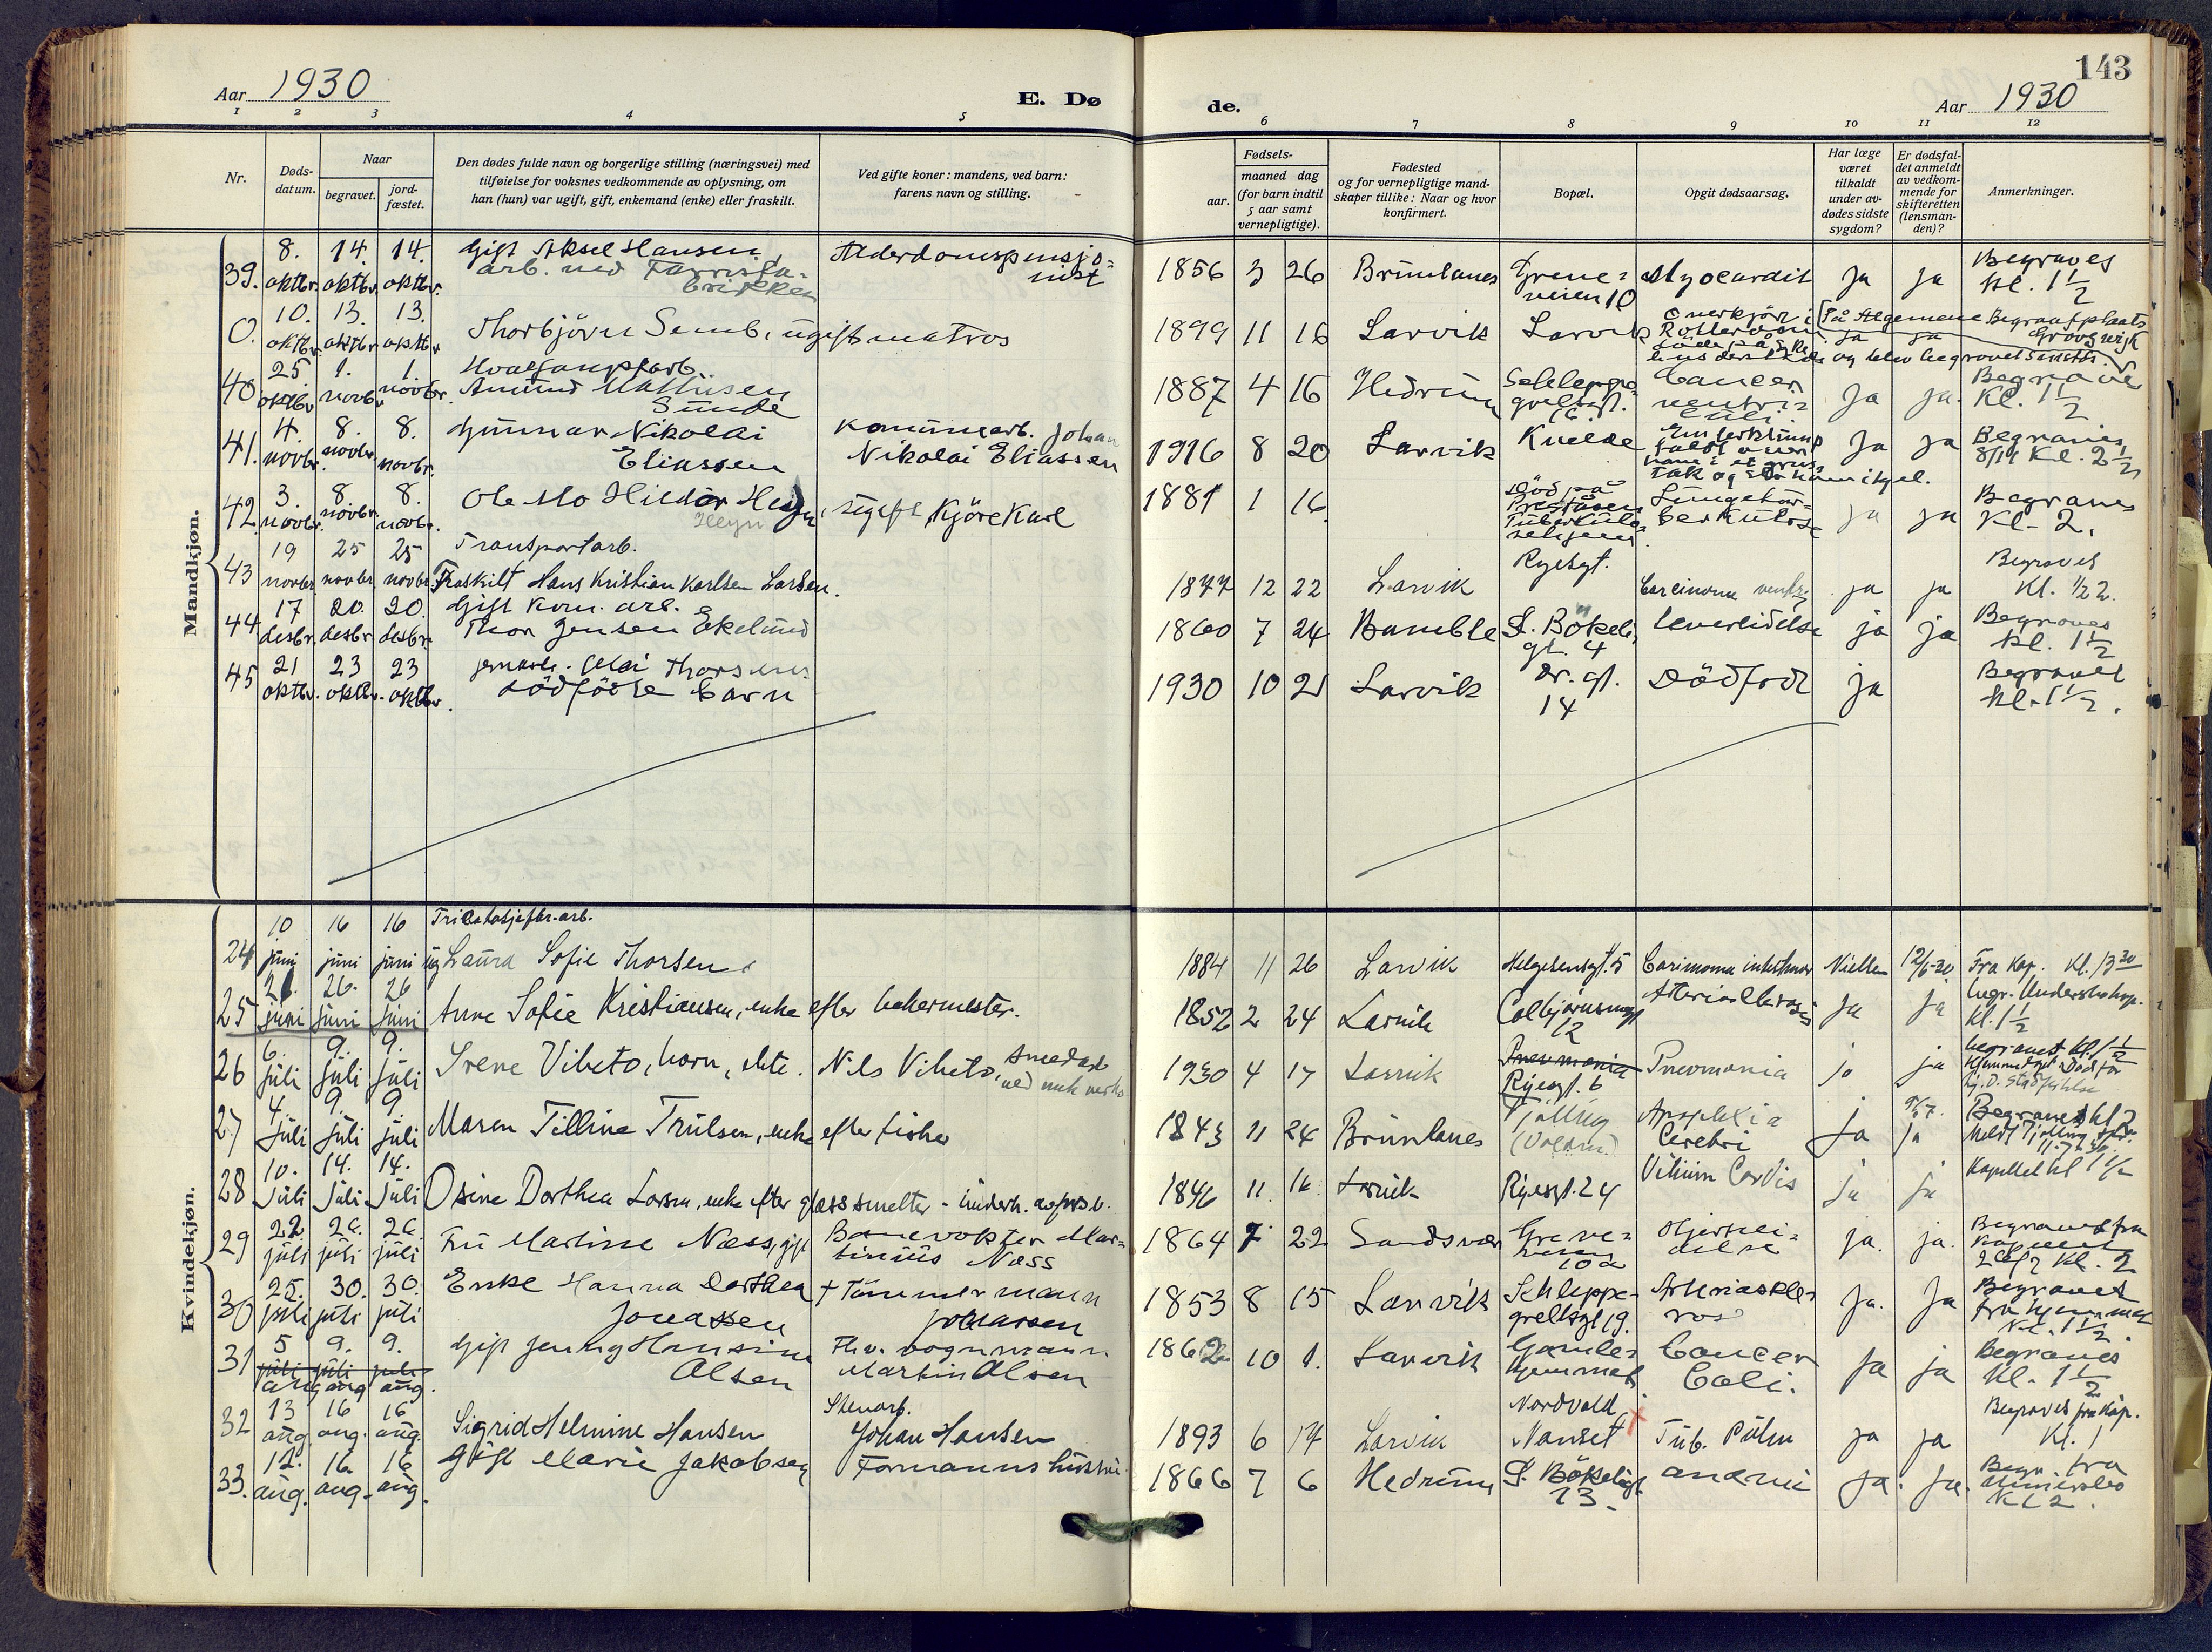 Aar 1930
E. Dø
de.
143
Aar 1930
1 2 3 4 5 6 7 8 9 10 11 12
Nr.
Døds-
datum.
Naar
begravet.
jord-
fæstet.
Den dødes fulde navn og borgerlige stilling (næringsvei) med
tilføielse for voksnes vedkommende av oplysning, om
han (hun) var ugift, gift, enkemand (enke) eller fraskilt.
Ved gifte koner: mandens, ved barn:
farens navn og stilling.
Fødsels-
aar.
maaned dag
(for barn indtil
5 aar samt
vernepligtige).
Fødested
og for vernepligtige mand-
skaper tillike: Naar og hvor
konfirmert.
Bopæl.
Opgit dødsaarsag.
Har læge
været
tilkaldt
under av-
dødes sidste
sygdom?
Er dødsfal-
det anmeldt
av vedkom-
mende for
skifteretten
(lensman-
den)?
Anmerkninger.
Mandkjøn.
39. 8. oktbr. 14. oktbr. 14. oktbr.
Gift Aksel Hansen
arb. ved Farrisfa-
brikken
Alderdomspensjo-
nist
1856 3 26 Brunlanes
Greve-
veien 10
Myocardit ja ja
Begraves
kl. 1 1/2
0. 10. oktbr. 13. oktbr. 13. oktbr.
Thorbjörn Semb, ugift matros
1899 11 16 Larvik Larvik
Overkjört i
Rotterdam
På Algemene Begraafplaats
Ja ja
og blev begravet
40 25. oktbr. 1. novbr. 1. novbr.
Hvalfangstarb.
Amund Mathisen
Sunde
1887 4 16 Hedrum
Schleppe-
grellsgt.
16.
Cancer
ventri-
culi.
Ja ja.
Begraves
Kl. 1 1/2
41. 4. novbr. 8. novbr. 8. novbr.
Gunnar Nikolai
Eliassen
Kommunearb. Johan
Nikolai Eliassen
1916 8 20 Larvik Kvelde
Ja ja
Begraves
8/11 Kl. 2 1/2
42. 3. novbr. 8. novbr. 8. novbr.
Ole Mo Hildor Heyn, ugift, Kjörekarl
Heyn
1881 1 16.
Död på
Preståsen
Tuberkulo-
sehjem.
Lungetu-
berkulose
ja ja
Begraves
Kl. 2.
43 19 novbr 25 novbr 25 novbr
Transportarb.
Fraskilt Hans Kristian Karlsen Larsen.
1877 12 22 Larvik Ryesgt.
Carcinoma ventr. ja ja
Begraves
Kl. 1/2 2.
44. 17 desbr. 20. desbr 20. desbr.
Gift Kom. arb.
Thor Jensen Ekelund
1860 7 24 Bamble
S. Bökeli
gt. 4
Leverlidelse ja ja
Begraves
kl. 1 1/2
45 21 oktbr. 23 oktbr. 23 oktbr.
Thorsens
dödfödte barn
1930 10 21 Larvik
Dr. gt.
14
Dödfödt ja
Begravet
kl. 1 1/2.
Kvindekjøn.
24 10 juni 16 juni 16 juni
ug Laura Sofie Thorsen
1884 11 26 Larvik Helgesensgt. 5
Nielsen 12/6-30 Fra Kap. Kl. 13 30
25 21. juni 26. juni 26 juni
Anne Sofie Kristiansen, enke efter bakermester.
1852 2 24 Larvik
Colbjörnsensgt
12
ja ja
kl. 1 1/2
26 6. juli 9. juli 9. juli
Irene Vibeto, barn, ekte. Nils Vibeto, smedarb
1930 4 17 Larvik
Pneumonia
Ryesgt. 6
Pneumonia ja ja
begravet kl. 1 1/2
27 4. juli 9. juli 9. juli
Maren Tilline Trulsen, enke efter fisker
1843 11 24 Brunlanes
Tjölling
Apoplexia
Cerebri
ja ja
Begravet kl 2
28 10. juli 14. juli 14. juli
Osine Dorthea Larsen, enke efter glassmelter - underh. av fors.v.
1846 11. 16. Larvik Ryesgt. 24 Vitium Cordis ja ja
Kapellet kl 1 1/2
29 22. juli 26. juli 26. juli
Fru Martine Næss, gift
Banevokter Mar-
tinius Næss
1864 7 22 Sandsvær
Greve-
veien
10 a
Hjerteli-
delse
ja. ja.
Begravet fra
kapellet
26/7 kl. 2
30 25. juli 30. juli 30. juli
Enke Hanna Dorthea
Jonassen
+ Tömmermann
Jonassen
1853 8 15 Larvik
Schleppe-
grellsgt 19.
Arterioskle-
rose
Ja. Ja
Begravet
fra hjemmet
Kl. 1 1/2.
31 5 juli aug 9. juli aug 9. juli aug.
Gift Jenny Hansine
Olsen
Fhv. vognmann
Martin Olsen
1862 10 1. Larvik
Gamle-
hjemmet
Cancer
Coli.
Ja ja
Begraves
Kl. 1 1/2
32 13 aug. 16 aug. 16 aug.
Sigrid Helmine Hansen
Stenarb.
Johan Hansen
1893 6 14 Larvik
Nordvold
Nanset
Tub. Pulm ja ja
Begraves fra Kap.
Kl. 1
33. 12. aug. 16. aug. 16 aug.
Gift Marie Jakobsen Formanns hustru.
1866 7 6 Hedrum
S. Bökeligt
13.
anæmi ja. ja.
Begr. fra
Undersbo
Kl 2.